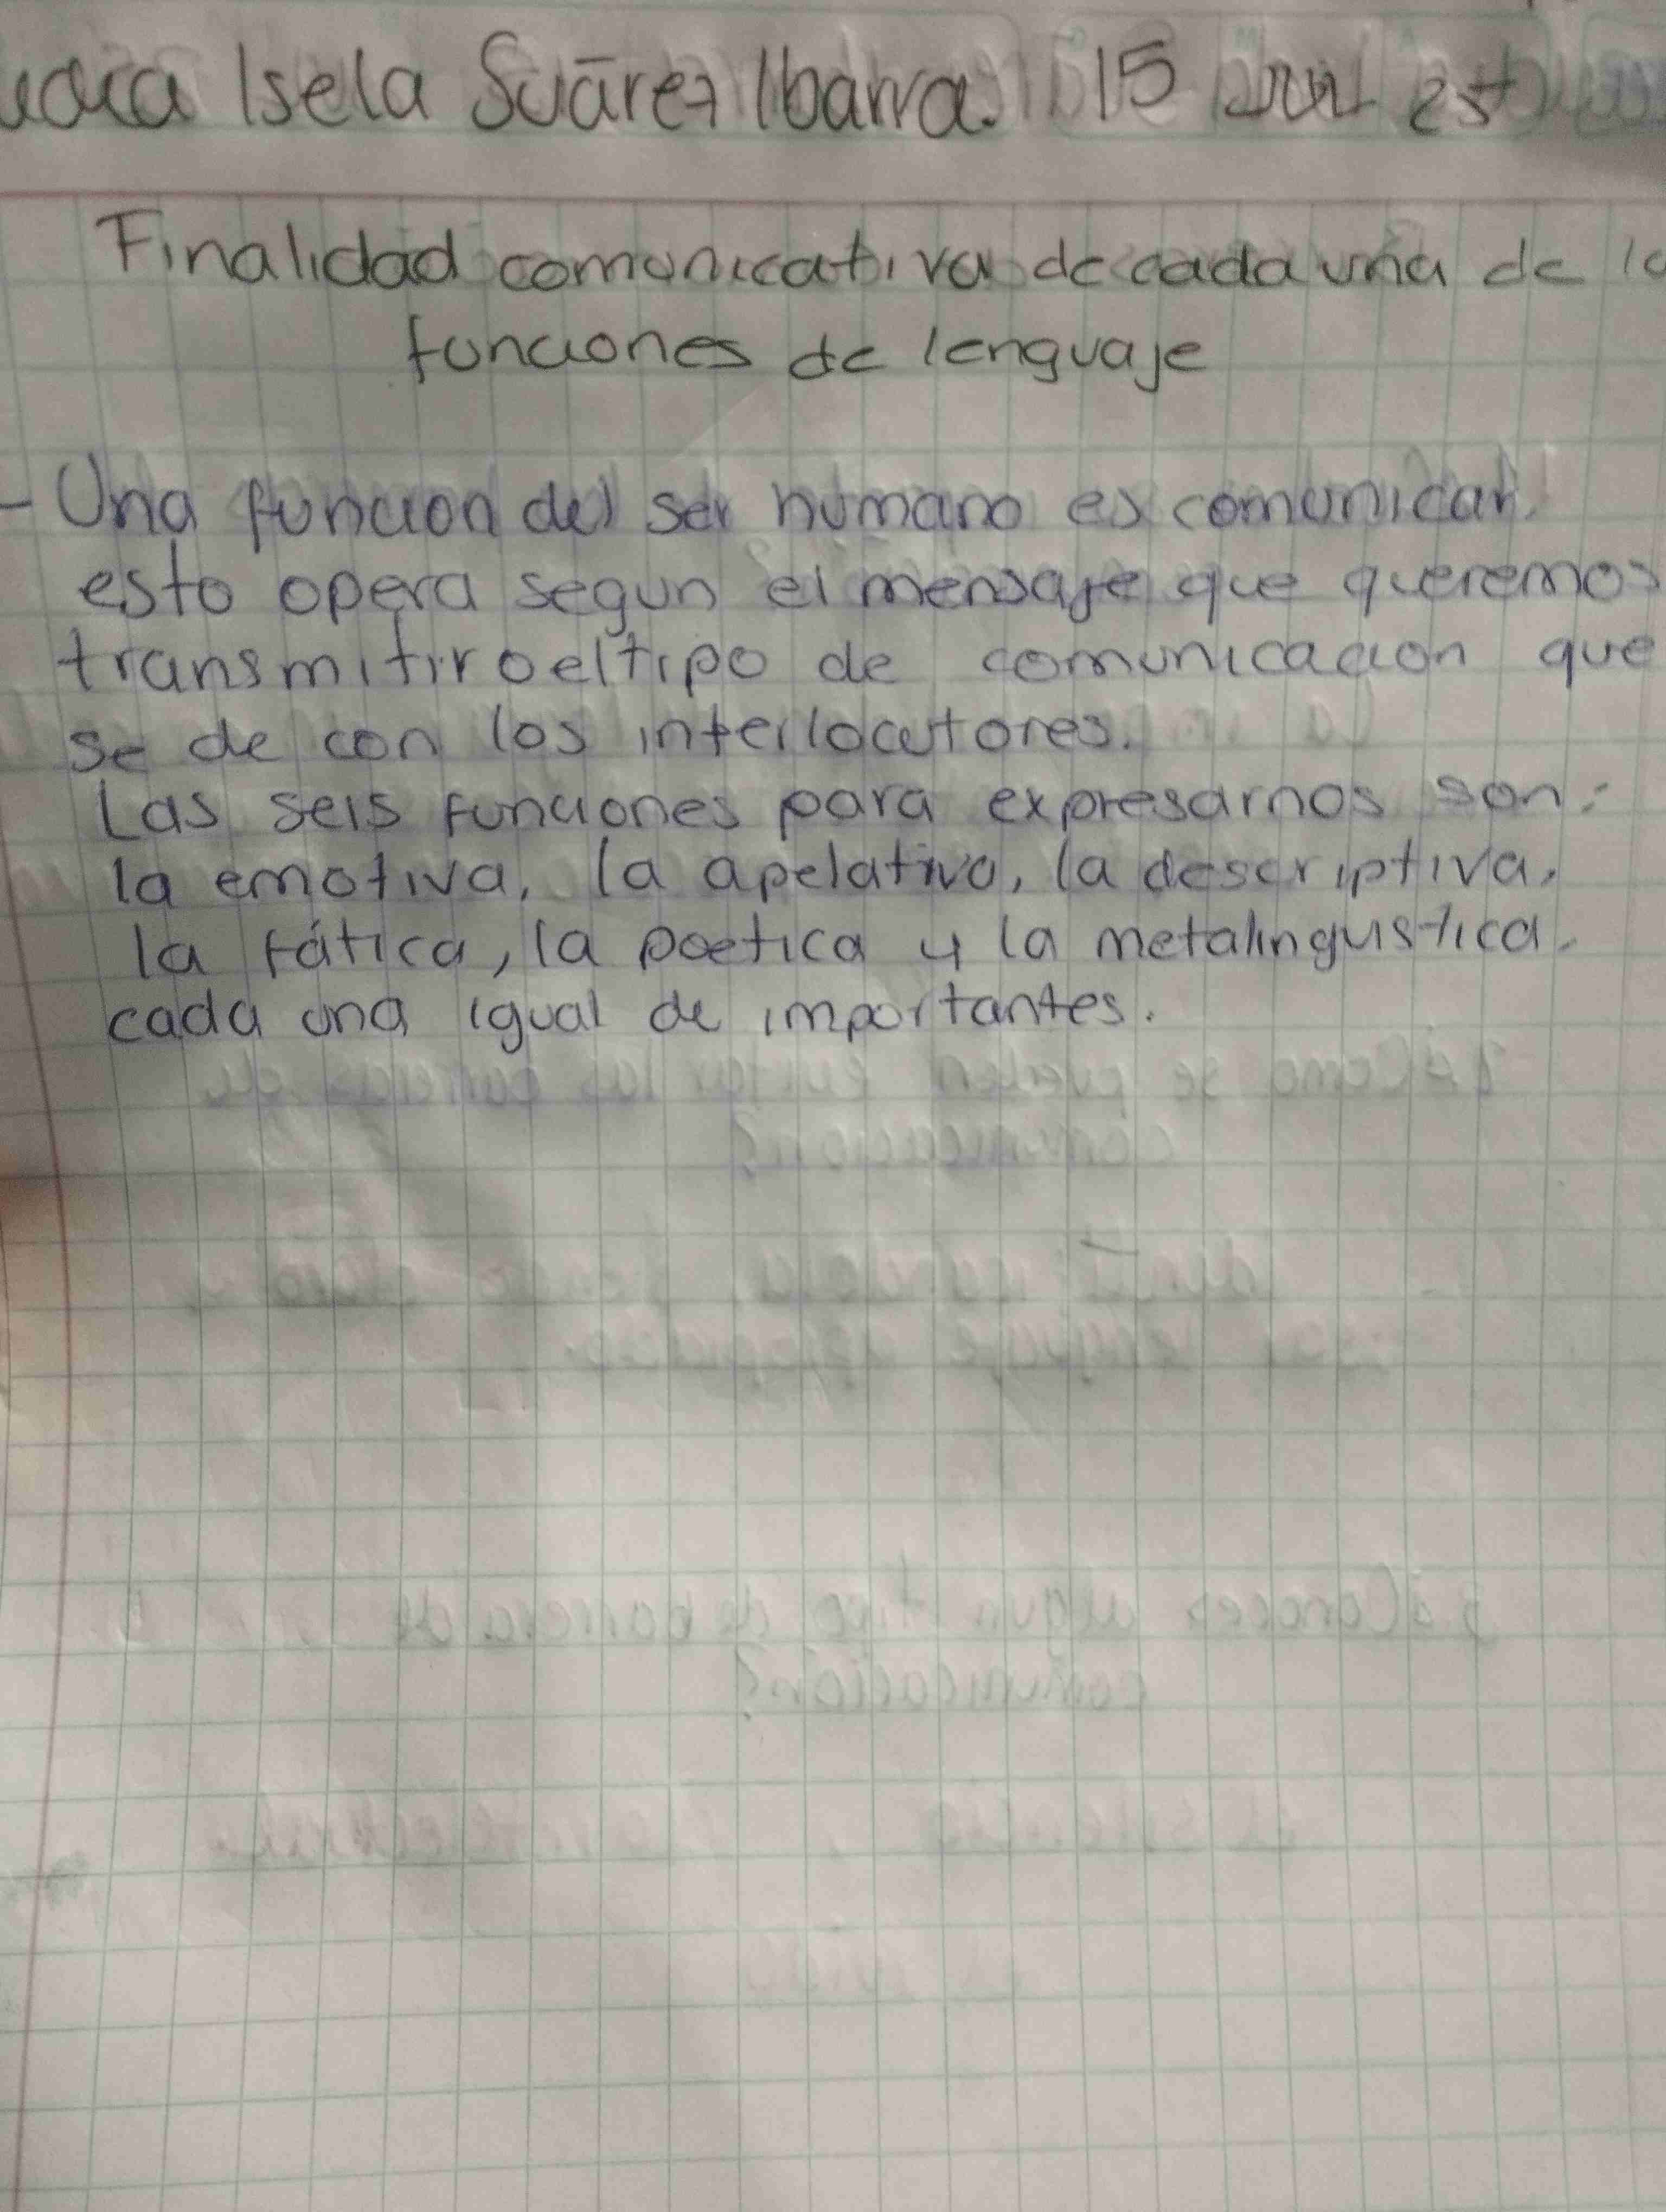 Isela Suárez Ibarra. 15
Finalidad comunicativa de cada una de
funciones de lenguaje
- Una funcion del ser humano es comunicar,
esto opera segun el mensaje que queremos
transmitir o el tipo de comunicacion que
se de con los interlocutores.
Las seis funciones para expresarnos son:
la emotiva, la apelativa, la descriptiva,
la fática, la poetica y la metalingustica,
cada una igual de importantes.